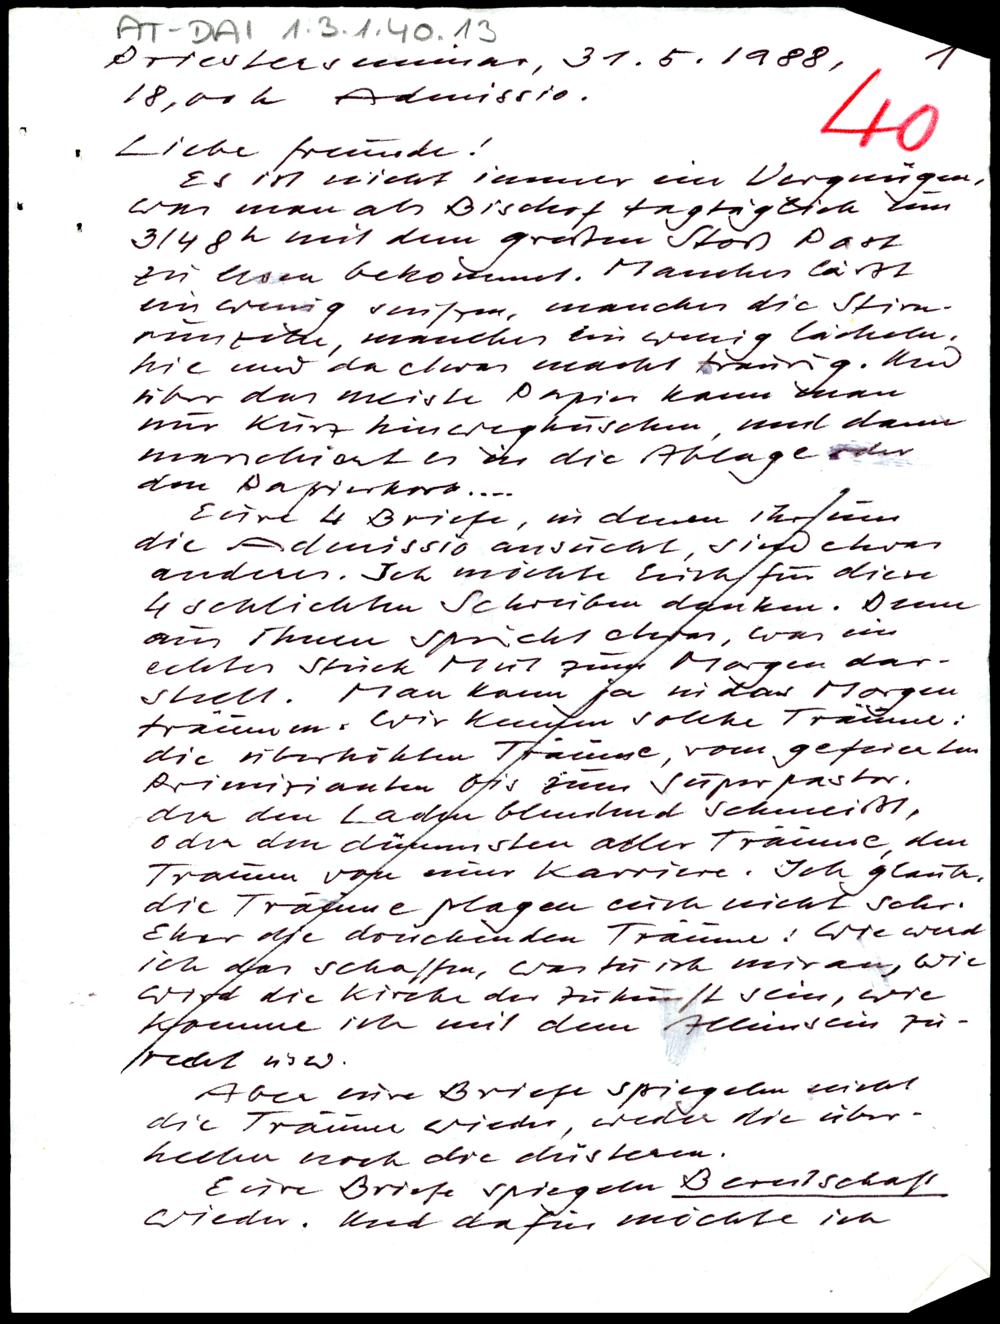 AT-DAI 1.3.1.40.13
Priesterseminar, 31.5.1988, 1
18,00 h Admissio.
40
Liebe Freunde!
Es ist nicht immer ein Vergnügen,
was man als Bischof tagtäglich um
3/4 8 h mit dem großen Stoß Post
zu lesen bekommt. Manches läßt
ein wenig seufzen, manches die Stirn-
runzeln, manches ein wenig lächeln.
hie und da etwas macht traurig. Und
über das meiste Papier kann man
nur kurz hinweghuschen, und dann
marschiert es in die Ablage oder
den Papierkorb....
Eure 4 Briefe, in denen ihr um
die Admissio ansucht, sind etwas
anderes. Ich möchte Euch für diese
4 schlichten Schreiben danken. Denn
aus ihnen spricht etwas, was ein
echtes Stück Mut zum Morgen dar-
stellt. Man kann ja in das Morgen
träumen. Wir kennen solche Träume:
die überhöhten Träume, vom gefeierten
Primizianten bis zum Superpastor.
der den Laden blendend schmeißt,
oder den dümmsten aller Träume, den
Traum von einer Karriere. Ich glaube,
die Träume plagen euch nicht sehr.
Eher die drückenden Träume: Wie werd
ich das schaffen, was tu ich mir an, wie
wird die Kirche der Zukunft sein, wie
komme ich mit dem Alleinsein zu-
recht usw.
Aber eure Briefe spiegeln nicht
die Träume wieder, weder die über-
hellen noch die düsteren.
Eure Briefe spiegeln Bereitschaft
wieder. Und dafür möchte ich